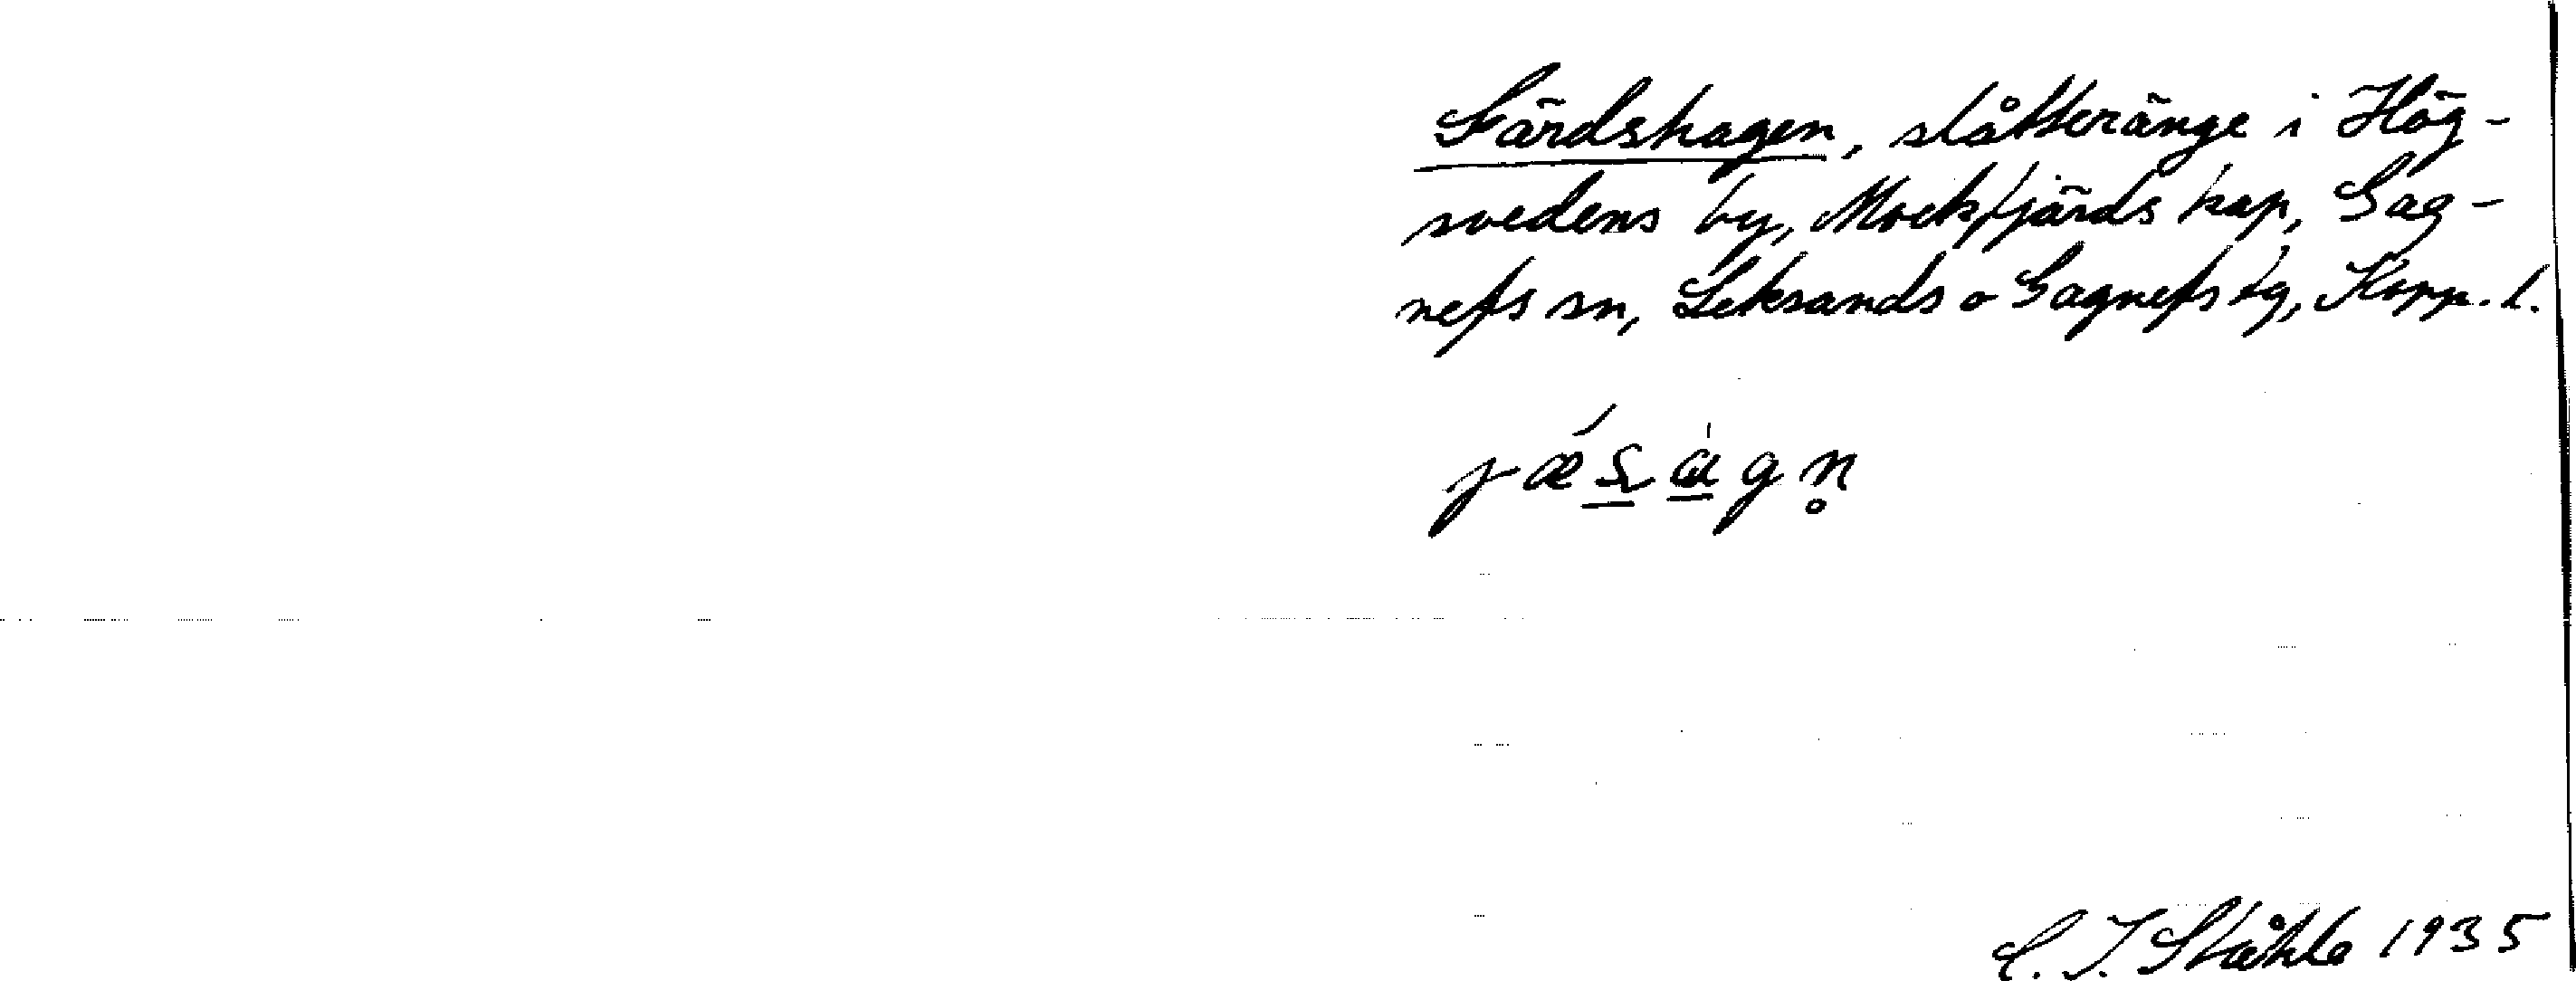 Gärdshagen, slåtteränge i Hög-
svedens by, Mockfjärds kap, Gag-
nefs sn, Leksands o Gagnefs tg, Kopp. l.
C. I. Ståhle 1935